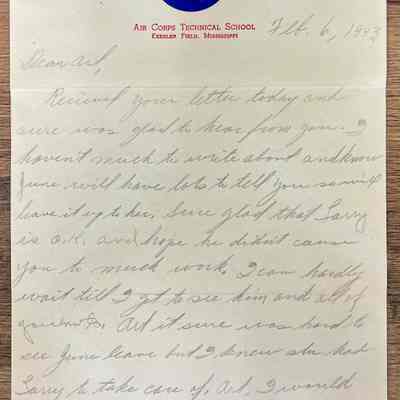 AIR CORPS TECHNICAL SCHOOL
KEESLER FIELD, MISSISSIPPI
Feb. 6, 1943
Dear Art,
Received your letter today and
sure was glad to hear from you. I
haven't much to write about and know
June will have lots to tell you so will
leave it up to her. Sure glad that Larry
is o.k. and hope he didn't cause
you to much work. I can hardly
wait till I get to see him and all of
Art it sure was hard to
see June leave but I knew she had
Larry to take care of. Art, I would